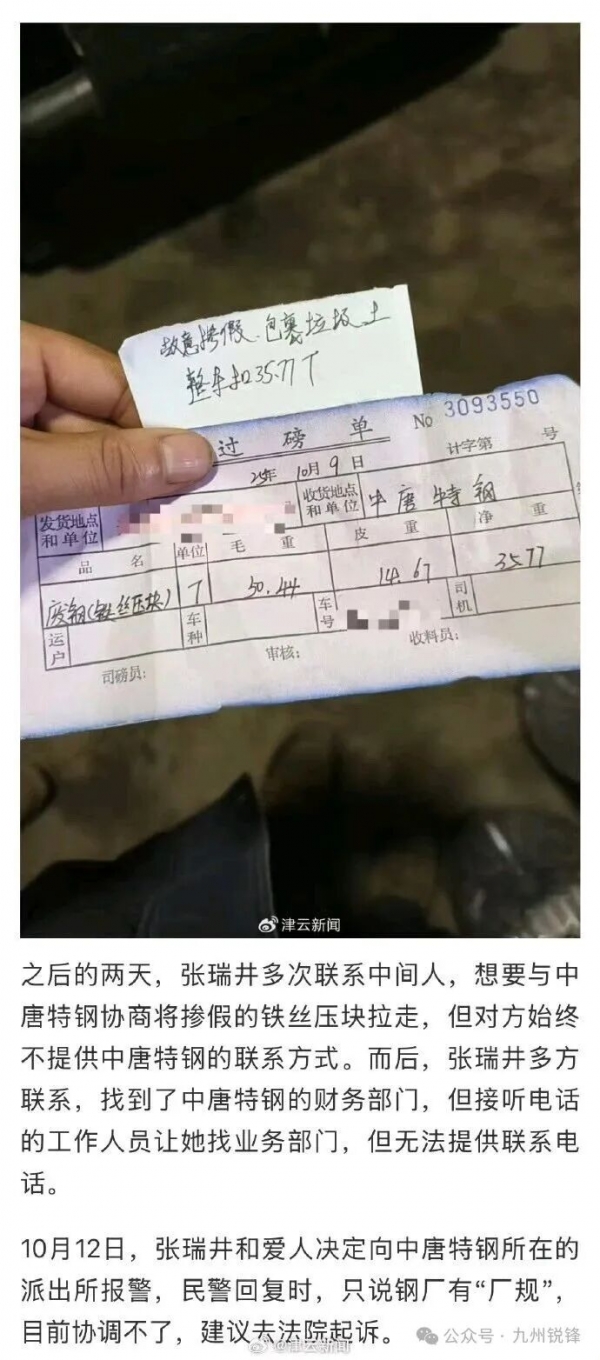 故意掺假.包裹垃圾土
整车扣35.77T
过磅单
No 3093550
25年10月9日
计字第 号
发货地点和单位
收货地点和单位
中唐特钢
品名
单位
毛重
皮重
净重
废钢(铁丝压块)
T
50.44
14.67
3577
运户
车种
车号
司机
司磅员:
审核:
收料员:
津云新闻
之后的两天，张瑞井多次联系中间人，想要与中
唐特钢协商将掺假的铁丝压块拉走，但对方始终
不提供中唐特钢的联系方式。而后，张瑞井多方
联系，找到了中唐特钢的财务部门，但接听电话
的工作人员让她找业务部门，但无法提供联系电
话。
10月12日，张瑞井和爱人决定向中唐特钢所在的
派出所报警，民警回复时，只说钢厂有“厂规”，
目前协调不了，建议去法院起诉。
公众号·九州锐锋
@津云新闻